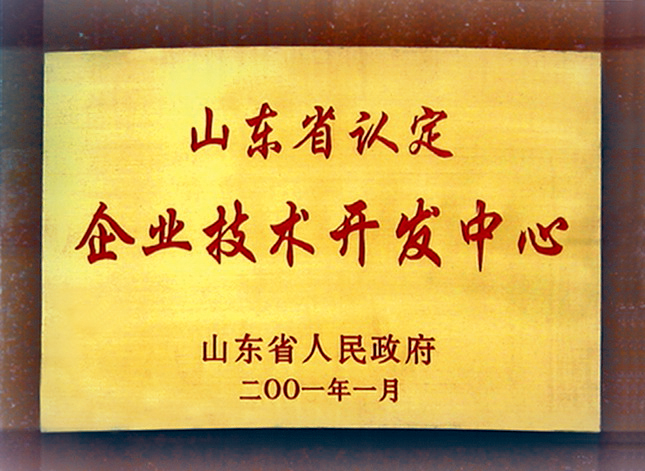 山东省认定
企业技术开发中心
山东省人民政府
二OO一年一月